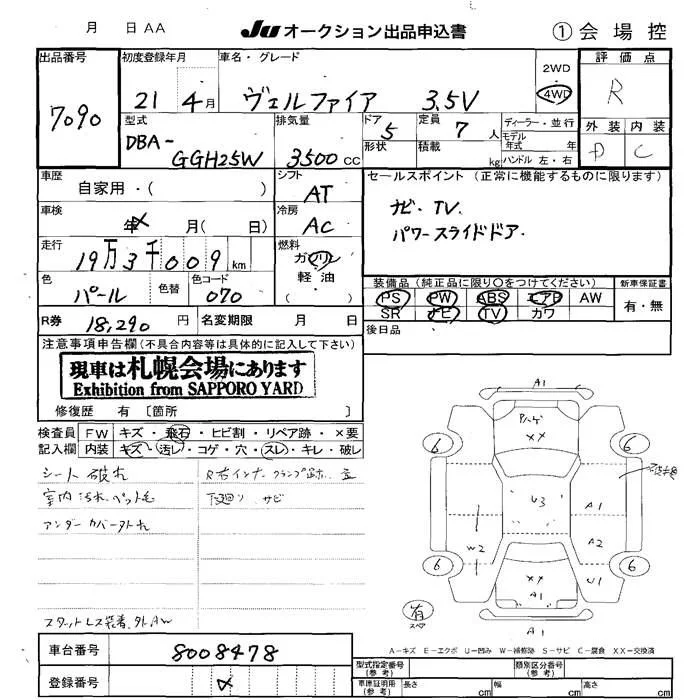 月 日 AA JU オークション出品申込書 ① 会場控
出品番号 初度登録年月 車名・グレード 2WD 評価点
7090 21 4月 ヴェルファイア 3.5V 4WD R
型式 排気量 ドア 定員 ディーラー・並行 外装 内装
DBA- 5 7人 モデル年式 年式 D C
GGH25W 3500cc 形状 積載 kg ハンドル 左・右
車歴 シフト セールスポイント (正常に機能するものに限ります)
自家用・( ) AT
車検 冷房 ナビ・TV
年 月( 日) AC パワースライドドア
走行 燃料
19万3千009km ガソリン
色 色替 色コード 軽油 装備品(純正品に限り○をつけてください) 新車保証書
パール 070 ( ) PS PW ABS エアB AW 有・無
R券 18,290円 名変期限 月 日 SR ナビ TV カワ
後日品
注意事項申告欄(不具合内容等は具体的に記入して下さい)
現車は札幌会場にあります
Exhibition from SAPPORO YARD
修復歴 有 [箇所 ]
検査員 FW キズ・飛石・ヒビ割・リペア跡・×要
記入欄 内装 キズ・汚レ・コゲ・穴・スレ・キレ・破レ
シート破れ
室内汚れ、ペット毛 下廻り サビ
アンダーカバー外れ
スタットレス装着、外AW
A1
パハゲ
XX
6 6
U3 A1
W2 A2
6 6
XX U1
A1
有
スペア
A1
A-キズ E-エクボ U-凹み W-補修跡 S-サビ C-腐食 XX-交換済
車台番号 8008478 型式指定番号(参考) 類別区分番号(参考)
登録番号 車庫証明用(参考) 長さ cm 幅 cm 高さ cm